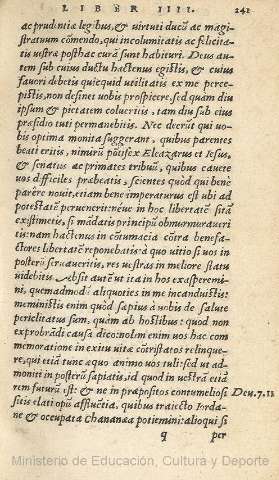 LIBER IIII. 241
ac prudentiæ legibus, & virtuti ducũ ac magi-
stratuum cõmendo, qui incolumitatis ac felicita
tis vestræ posthac curã sunt habituri. Deus au-
tem sub cuius ductu hactenus egistis, & cuius
favori debetis quicquid utilitatis ex me perce-
pistis, non desinet vobis prospicere, sed quam diu
ipsum & pietatem colueritis, tam diu sub eius
præsidio tuti permanebitis. Nec deerũt qui vo-
bis optima monita suggerant, quibus parentes
beati eritis, nimirũ põtifex Eleazarus et Iesus,
& senatus ac primates tribuũ, quibus cavete
vos difficiles præbeatis, scientes quòd qui benè
parêre novit, etiam benè imperaturus est ubi ad
potestatẽ pervenerit: neve in hoc libertatẽ sitã
existimetis, si mãdatis principũ obmurmuraveri
tis: nam hactenus in cõtumacia cõtra benefa-
ctores libertatẽ reponebatis: à quo vitio si vos in
posterũ servaveritis, res vestras in meliore statu
videbitis. Absit autẽ ut ita in hos exasperemi-
ni, quemadmodũ aliquoties in me incanduistis:
meministis enim quòd sæpius à vobis de salute
periclitatus sum, quàm ab hostibus: quod non
exprobrãdi causa dico: nolim enim vos hac com
memoratione in exitu vitæ cõtristatos relinque-
re, qui etiã tunc æquo animo vos tuli: sed ut ad-
moniti in posterũ sapiatis, id quod in vestrã etiã
rem futurũ est: & ne in præpositos contumeliosi Deu. 7. 11
sitis elati opũ affluẽtia, quibus traiecto Iorda-
ne & occupata Chananæa potiemini: alioqui si
q per
Ministerio de Educación, Cultura y Deporte